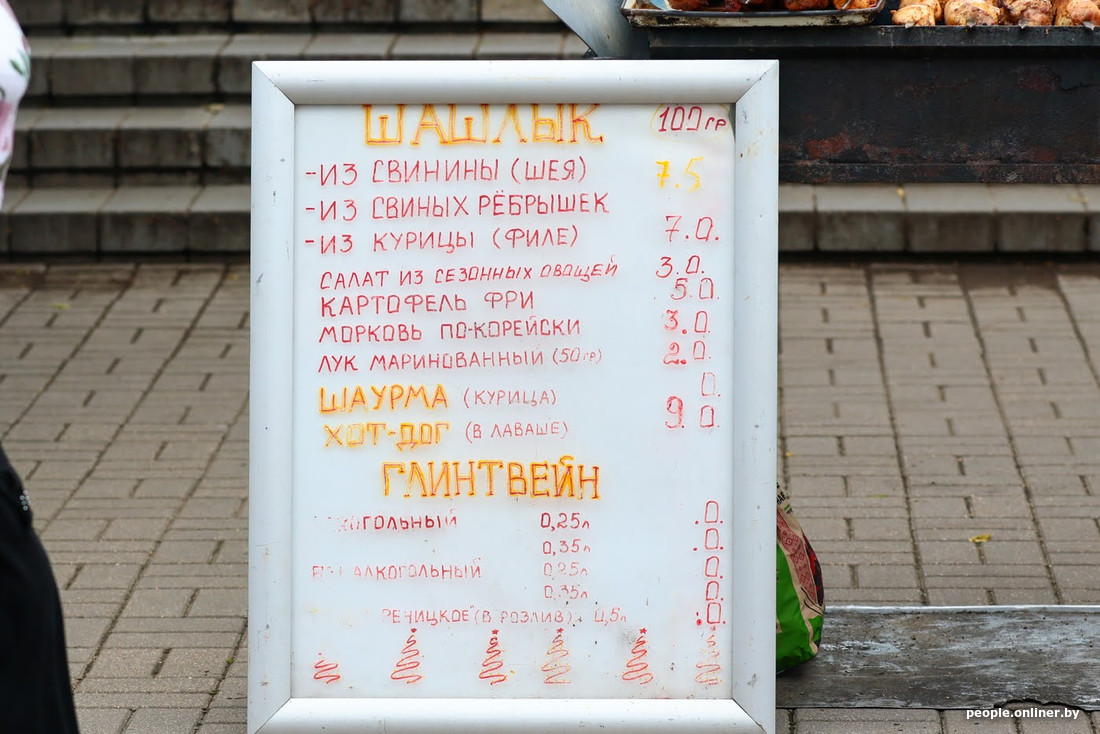 ШАШЛЫК 100гр
-ИЗ СВИНИНЫ (ШЕЯ) 7.5
-ИЗ СВИНЫХ РЁБРЫШЕК
-ИЗ КУРИЦЫ (ФИЛЕ) 7.0.
САЛАТ ИЗ СЕЗОННЫХ ОВОЩЕЙ 3.0.
КАРТОФЕЛЬ ФРИ 5.0.
МОРКОВЬ ПО-КОРЕЙСКИ 3.0.
ЛУК МАРИНОВАННЫЙ (50гр) 2.0.
ШАУРМА (КУРИЦА) 0.
ХОТ-ДОГ (В ЛАВАШЕ) 9.0.
ГЛИНТВЕЙН
0,25л .0.
0,35л .0.
АЛКОГОЛЬНЫЙ 0,25л 0.
0,35л 0.
РЕЧИЦКОЕ" (В РОЗЛИВ) 0,5л .0.
people.onliner.by